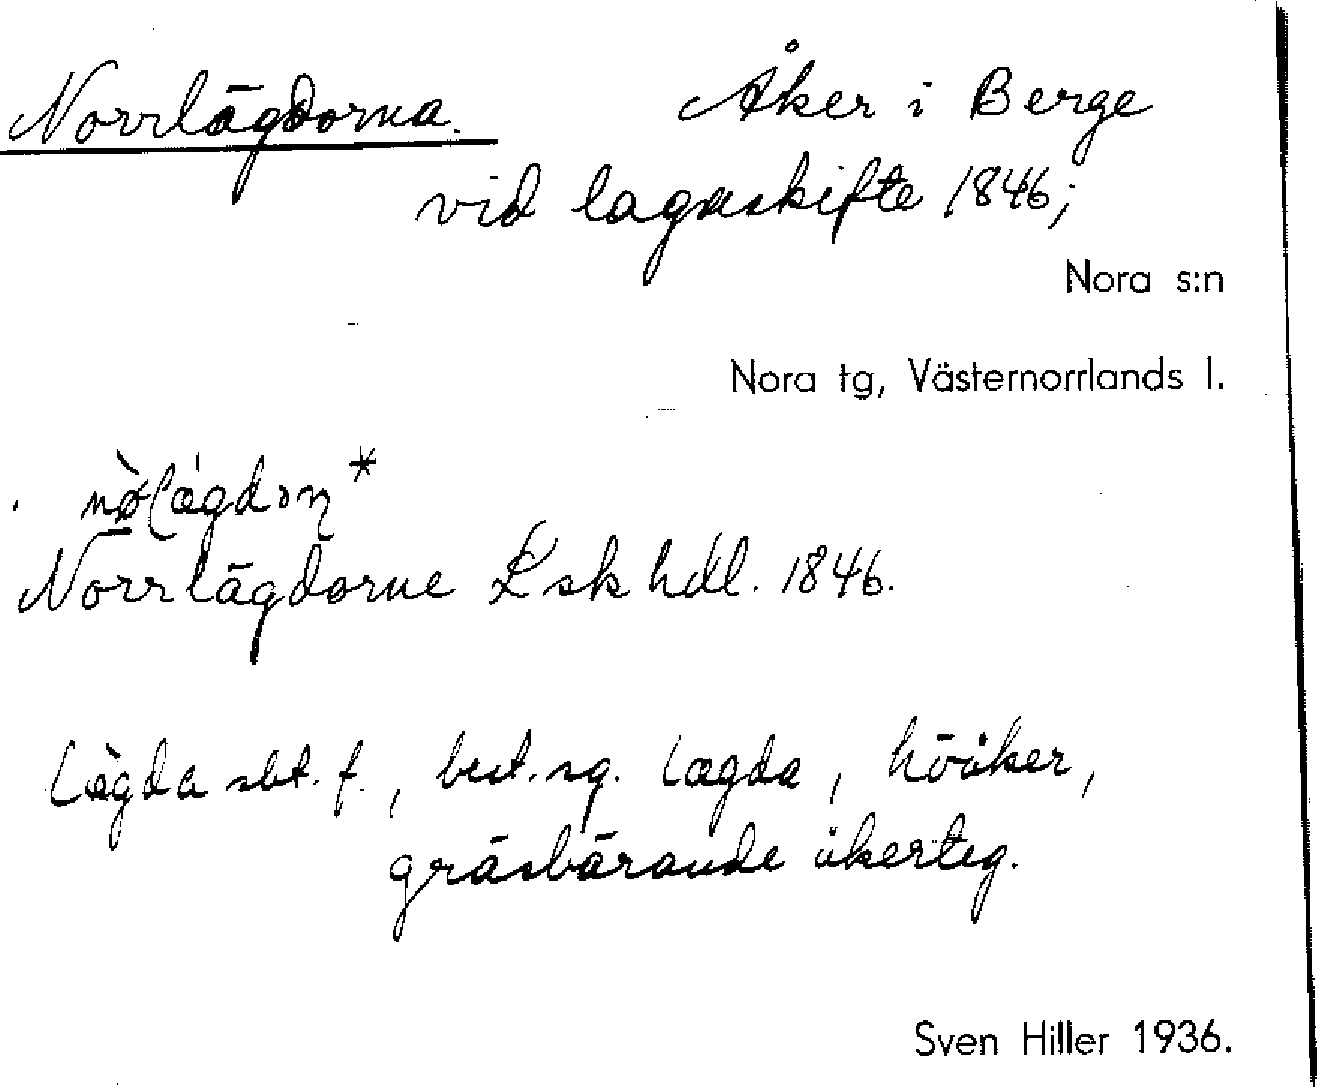 Norrlägdorna. Åker i Berge
vid lagaskifte 1846;
Nora s:n
Nora tg, Västernorrlands l.
Norrlägdorne Lsk hdl. 1846.
Lægda sbt. f., best. sg. Lægda, höåker,
gräsbärande åkerteg.
Sven Hiller 1936.